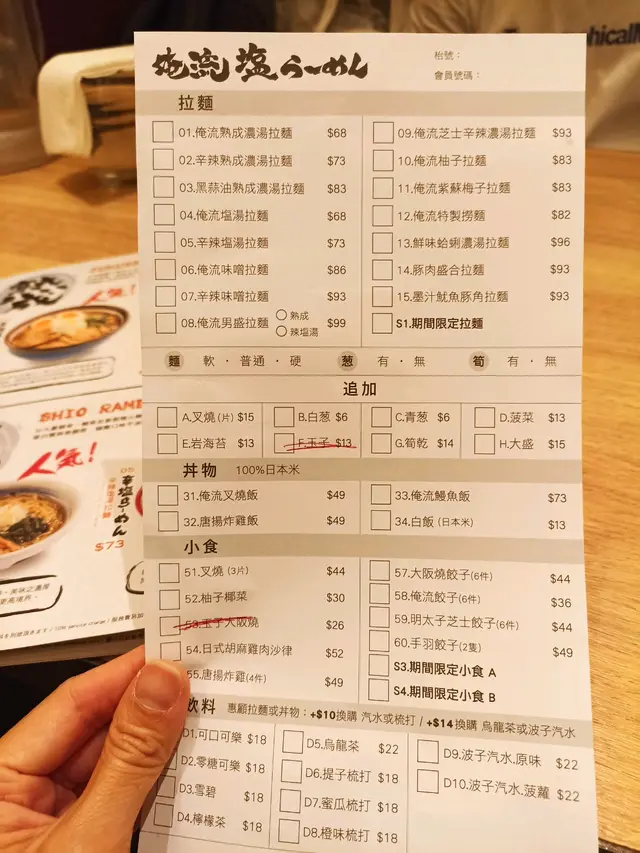 俺流塩らーめん
枱號：
會員號碼：
拉麵
01.俺流熟成濃湯拉麵 $68
02.辛辣熟成濃湯拉麵 $73
03.黑蒜油熟成濃湯拉麵 $83
04.俺流塩湯拉麵 $68
05.辛辣塩湯拉麵 $73
06.俺流味噌拉麵 $86
07.辛辣味噌拉麵 $93
08.俺流男盛拉麵 ○熟成 ○辣塩湯 $99
09.俺流芝士辛辣濃湯拉麵 $93
10.俺流柚子拉麵 $83
11.俺流紫蘇梅子拉麵 $83
12.俺流特製撈麵 $82
13.鮮味蛤蜊濃湯拉麵 $96
14.豚肉盛合拉麵 $93
15.墨汁魷魚豚角拉麵 $93
S1.期間限定拉麵
麵 軟・普通・硬 葱 有・無 筍 有・無
追加
A.叉燒(片) $15 B.白葱 $6 C.青葱 $6 D.菠菜 $13
E.岩海苔 $13 F.玉子 $13 G.筍乾 $14 H.大盛 $15
丼物 100%日本米
31.俺流叉燒飯 $49
32.唐揚炸雞飯 $49
33.俺流鰻魚飯 $73
34.白飯(日本米) $13
小食
51.叉燒(3片) $44
52.柚子椰菜 $30
53.玉子大阪燒 $26
54.日式胡麻雞肉沙律 $52
55.唐揚炸雞(4件) $49
57.大阪燒餃子(6件) $44
58.俺流餃子(6件) $36
59.明太子芝士餃子(6件) $44
60.手羽餃子(2隻) $49
S3.期間限定小食 A
S4.期間限定小食 B
飲料 惠顧拉麵或丼物：+$10換購 汽水或梳打 / +$14換購 烏龍茶或波子汽水
D1.可口可樂 $18
D2.零糖可樂 $18
D3.雪碧 $18
D4.檸檬茶 $18
D5.烏龍茶 $22
D6.提子梳打 $18
D7.蜜瓜梳打 $18
D8.橙味梳打 $18
D9.波子汽水.原味 $22
D10.波子汽水.菠蘿 $22
人気！
SHIO RAME
人気！
05
辛塩らーめん
$73